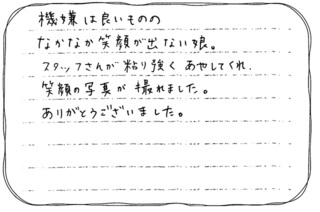 機嫌は良いものの
なかなか笑顔が出ない娘。
スタッフさんが粘り強くあやしてくれ、
笑顔の写真が撮れました。
ありがとうございました。